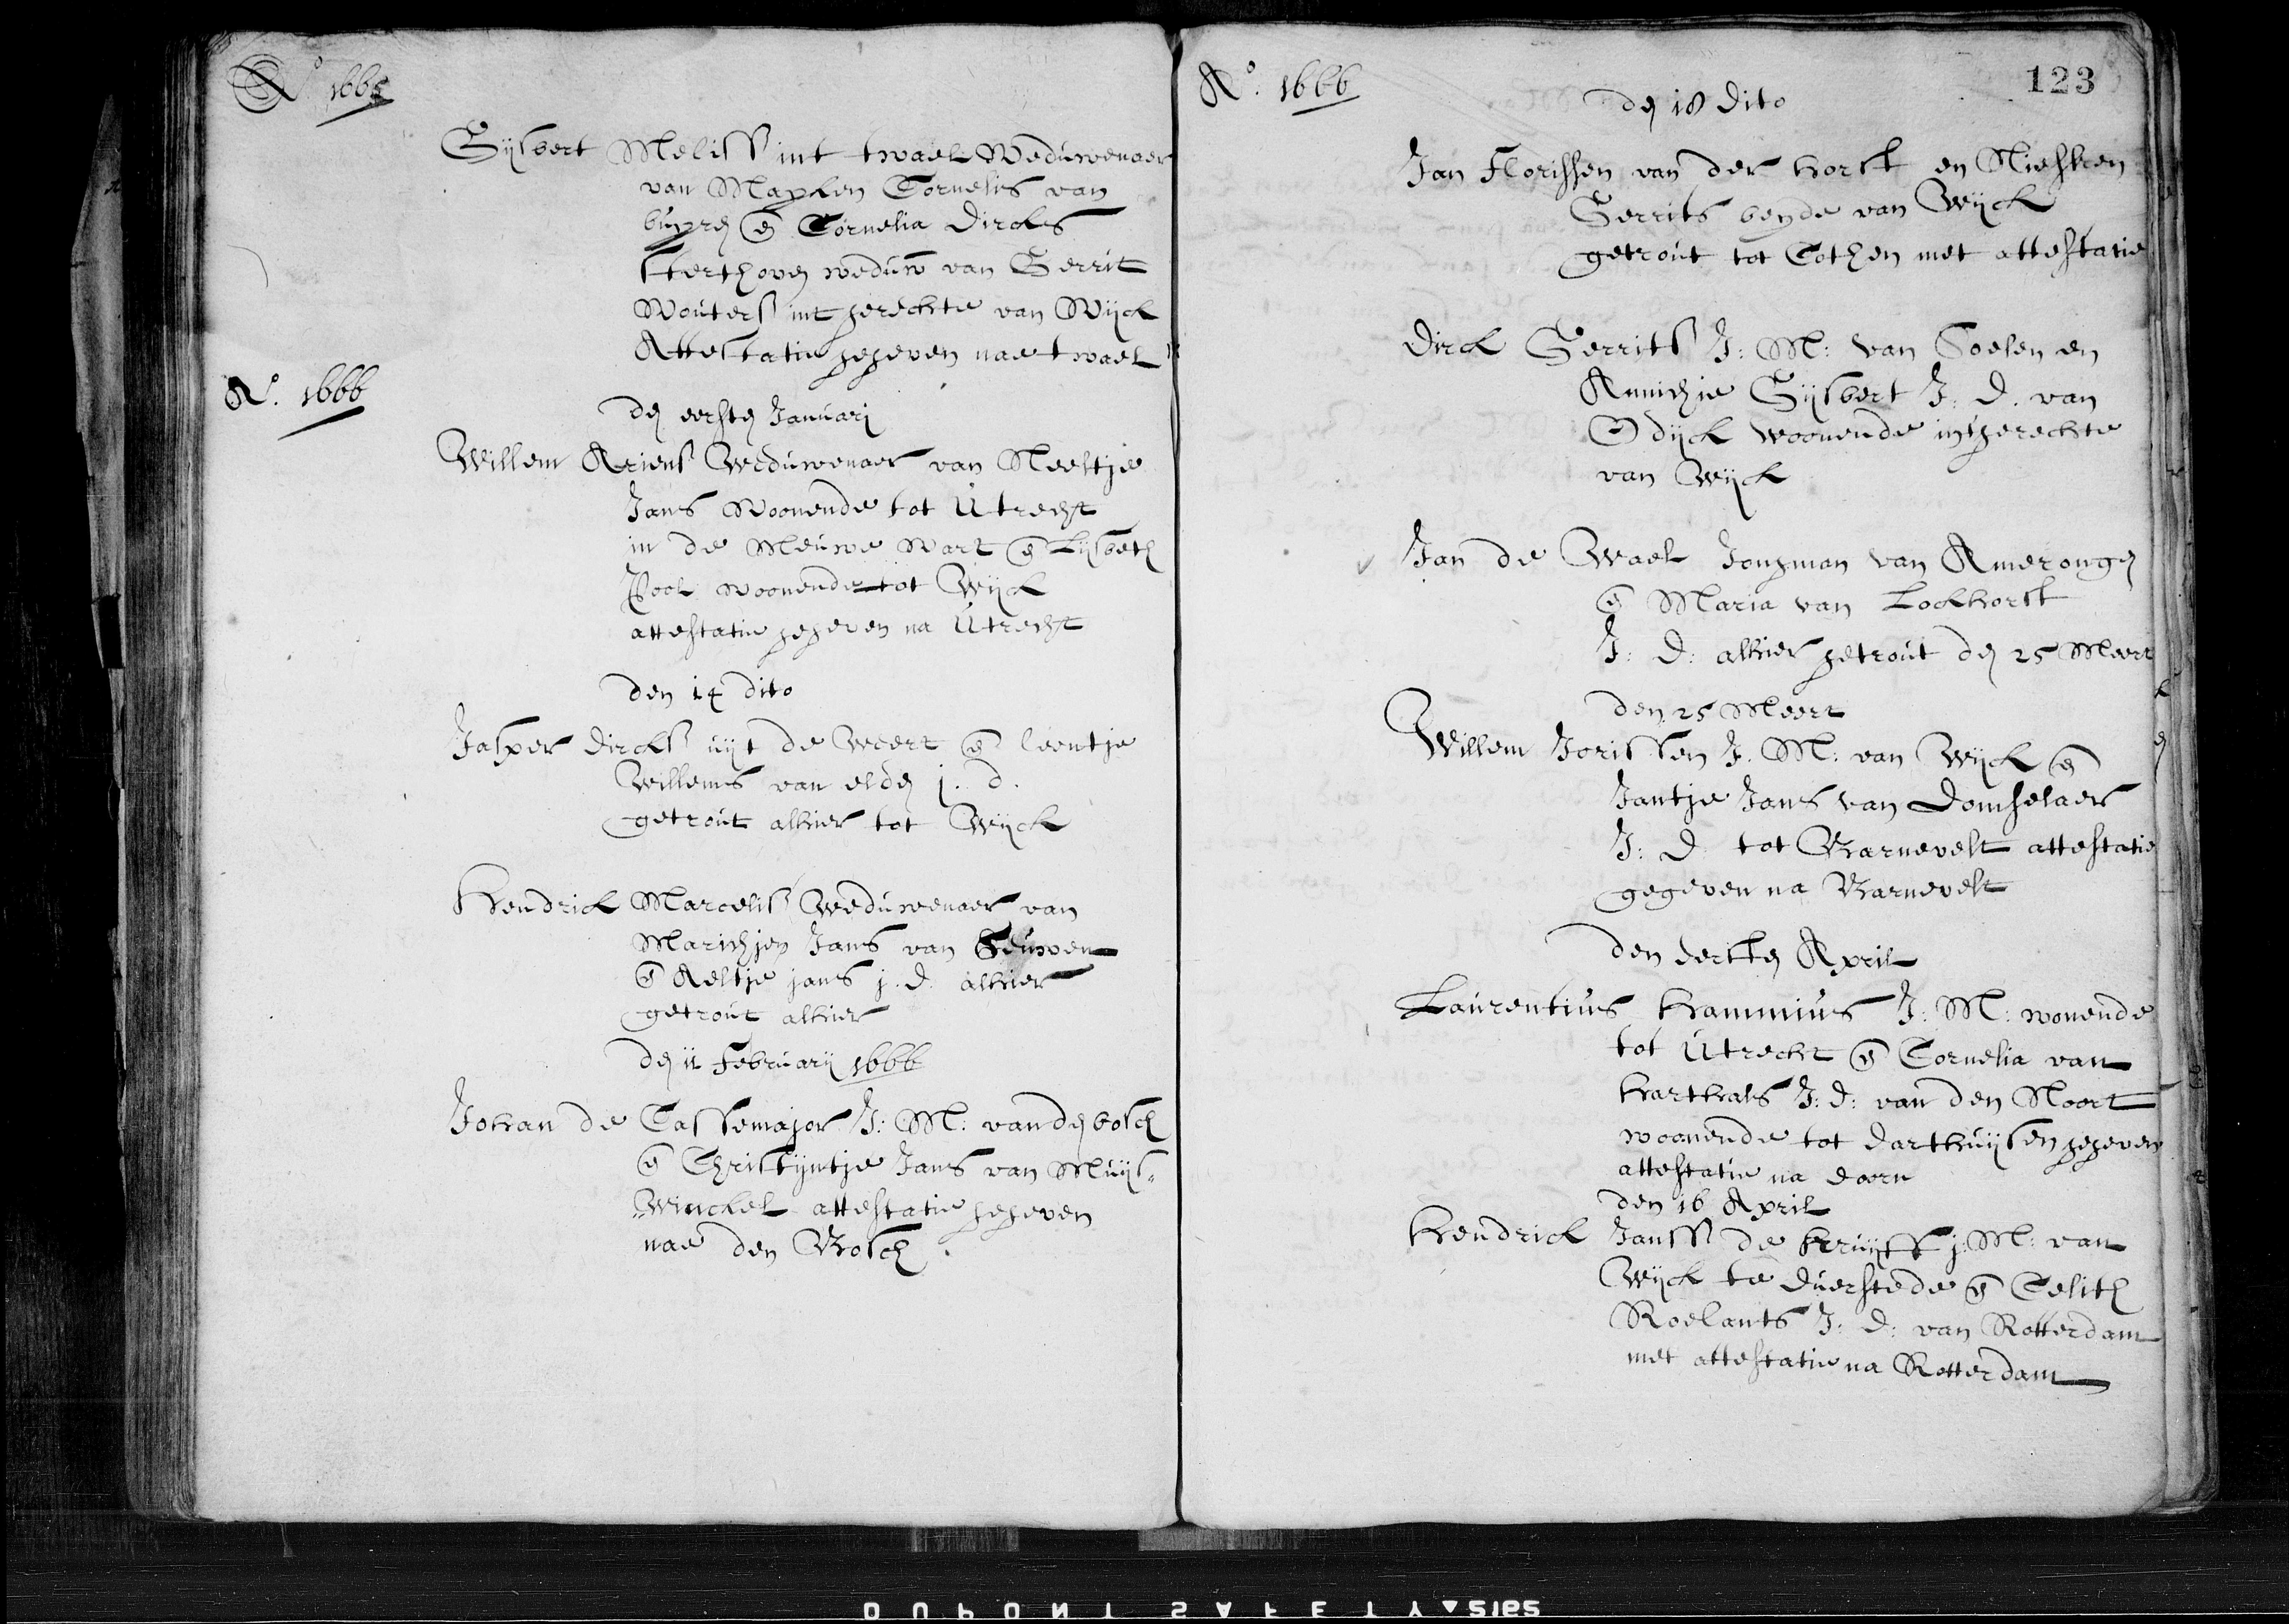 Ao 1665
Gijsbert Meliss int twael Weduwenaer
van Mayken Cornelis van
buyren en Cornelia Dircks
sterthoven weduw van Gerrit
Wouterss int gerechte van Wijck
Attestatie gegeven nae twael
Ao. 1666
den eersten Januarij
Willem Ariens Weduwenaer van Neeltje
Jans Woonende tot Utrecht
in de Nieuwe Wart en Lijsbeth
Pool woonende tot Wijck
attestatie gegeven na Utrecht
den 14 dito
Jasper dircks uijt de Weert en leentje
Willems van elden j. d.
getrout alhier tot Wijck
Hendrick Marcelis Weduwenaer van
Marichjen Jans van
en Aeltje jans j. d. alhier
getrout alhier
den 11 Februarij 1666
Johan de Cassemajor J: M: van den bosch
en Christijntje Jans van Muijs„
„Winckel attestatie gegeven
nae den Bosch.
Ao. 1666
123
den 18 dito
Jan Florissen van der horst en Niesken
Gerrits beyde van Wijck
getrout tot Cothen met attestatie
Dirck Gerrits J: M: van Soelen en
Annichje Gijsbert J. D. van
Odijck woonende int gerechte
van Wijck
Jan de Wael Jongman van Amerongen
en Maria van Lockhorst
J: D: alhier getrout den 25 Meert
den 25 Meert
Willem Jorissen J. M: van Wijck en
Jantje Jans van Domselaer
J: D. tot Barnevelt attestatie
gegeven na Barnevelt
den eersten April
Laurentius hammius J: M: wonende
tot Utrecht en Cornelia van
harthals J: d: van den Noort
woonende tot darthuijsen gegeven
attestatie na doorn
den 16 April
Hendrick Janss de Kruijff j: M: van
Wijck te duerstede en Celith
Roelants J: D: van Rotterdam
met attestatie na Rotterdam
DUPONT SAFETY